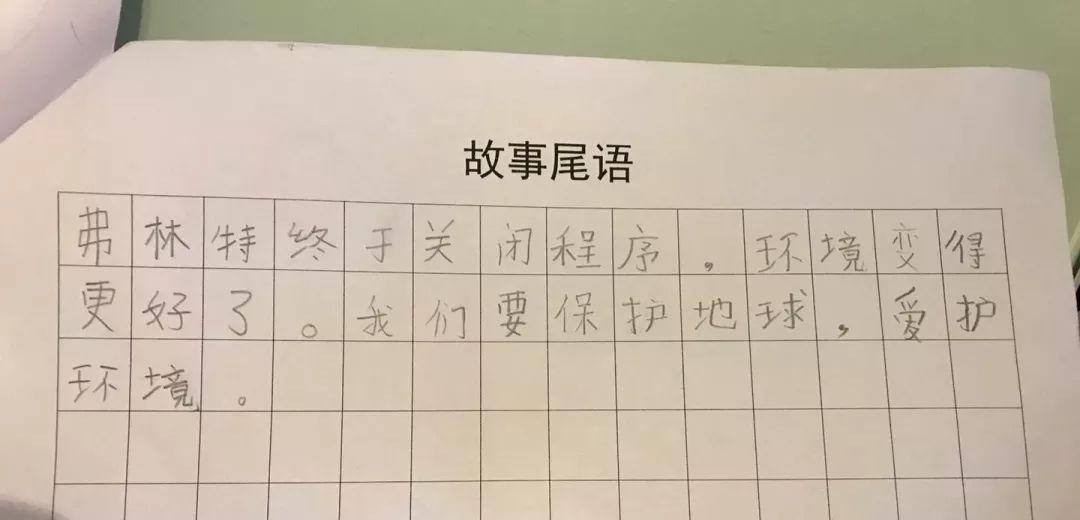 故事尾语
弗林特终于关闭程序，环境变得
更好了。我们要保护地球，爱护
环境。